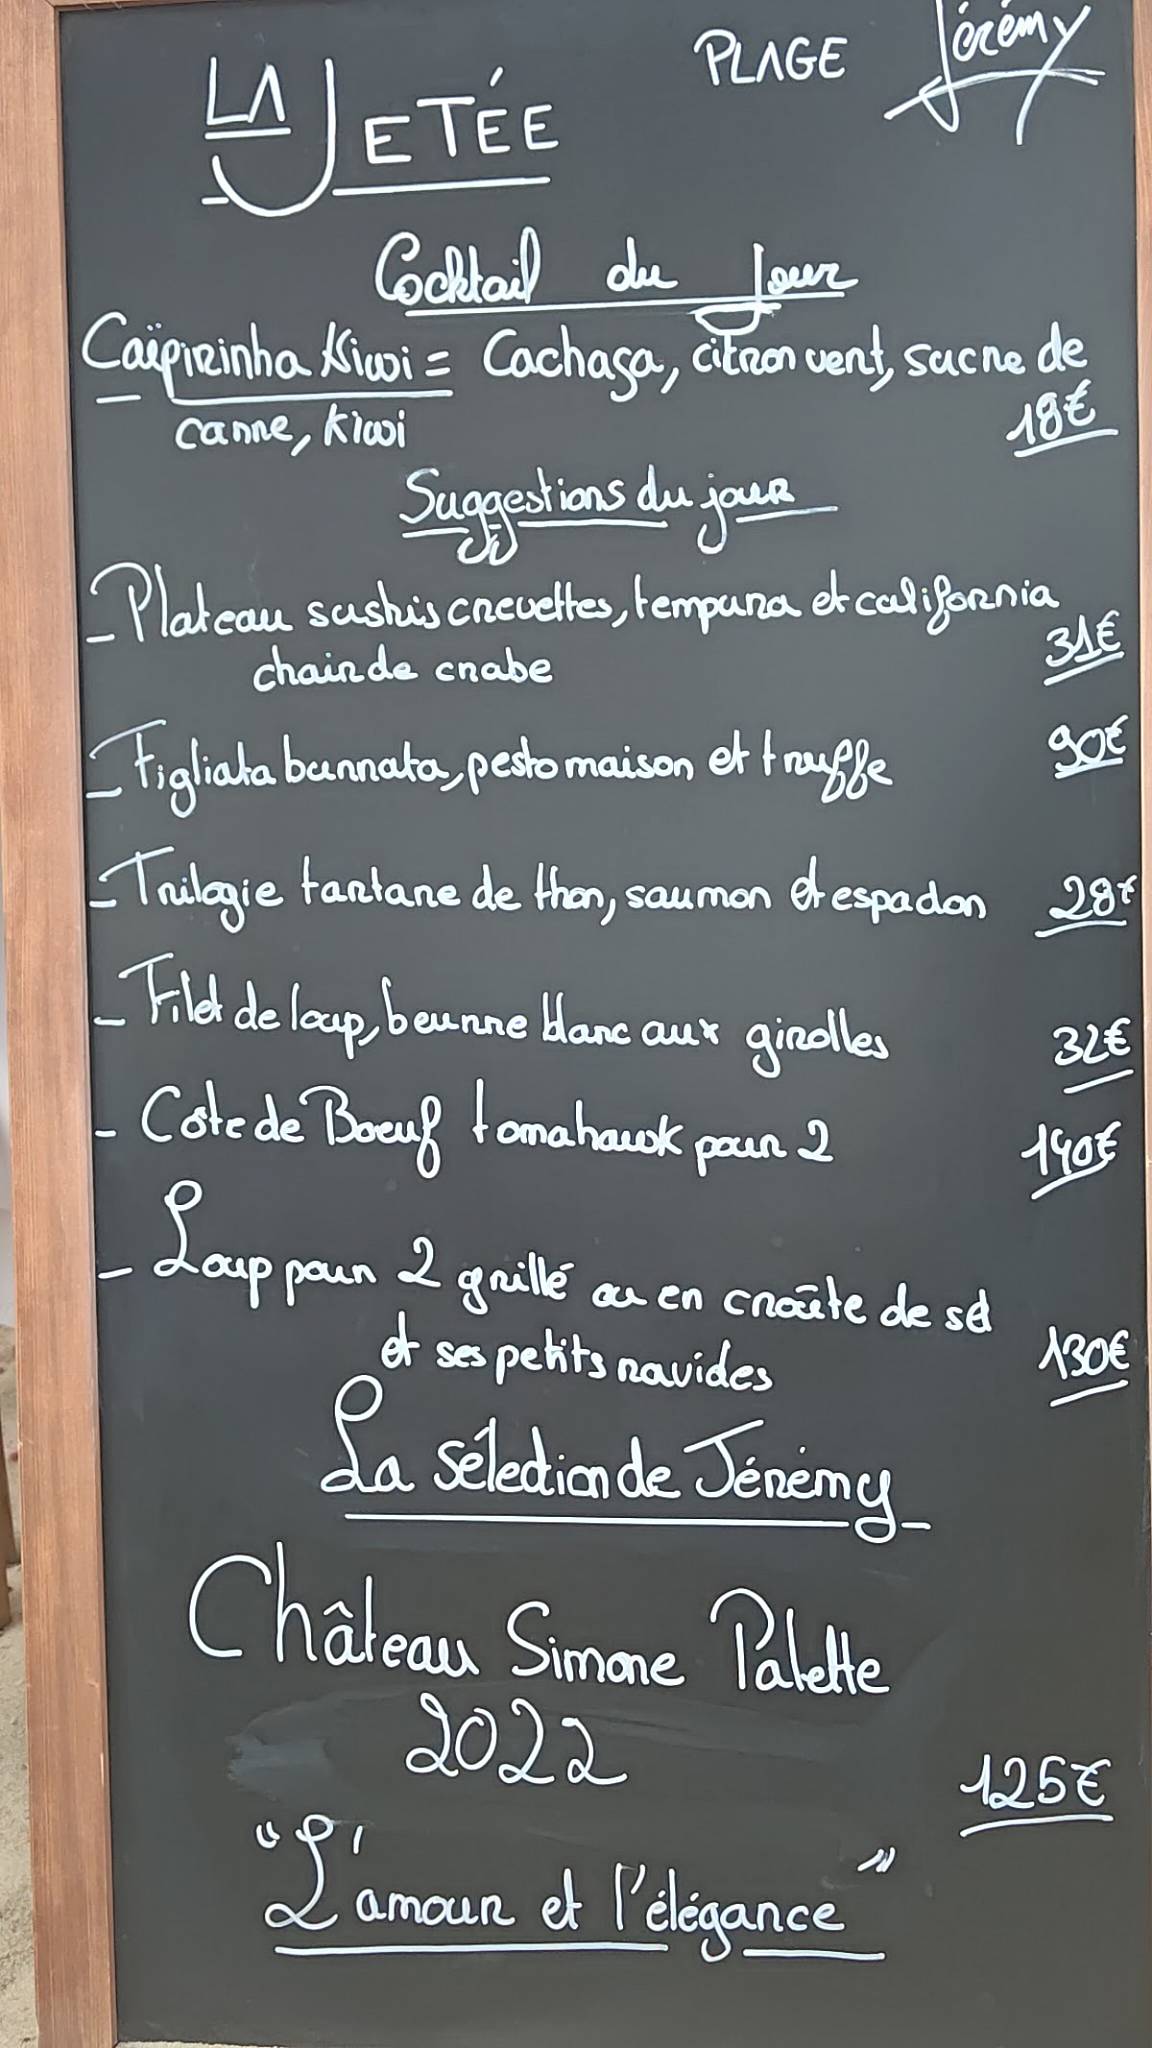 LA JETÉE PLAGE Jérémy
Cocktail du Jour
Caïpirinha Kiwi = Cachaça, citron vert, sucre de
canne, kiwi 18€
Suggestions du jour
- Plateau sushis crevettes, tempura et california
chair de crabe 31€
- Figliata burrata, pesto maison et truffe 90€
- Trilogie tartare de thon, saumon et espadon 28€
- Filet de loup, beurre blanc aux girolles 32€
- Côte de Boeuf tomahawk pour 2 140€
- Loup pour 2 grillé ou en croûte de sel
et ses petits ravioles 130€
La sélection de Jérémy
Château Simone Palette
2022
125€
"L'amour et l'élégance"